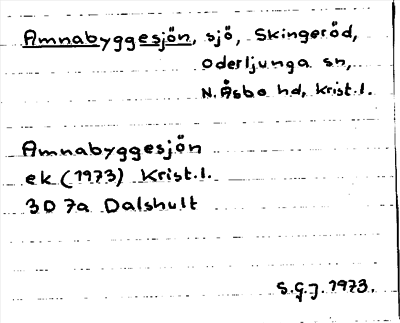 Amnabyggesjön, sjö, Skingeröd,
Oderljunga sn,
N. Åsbo hd, Krist.l.
Amnabyggesjön
ek (1973) Krist.l.
3D 7a Dalshult
S.G.J. 1973.